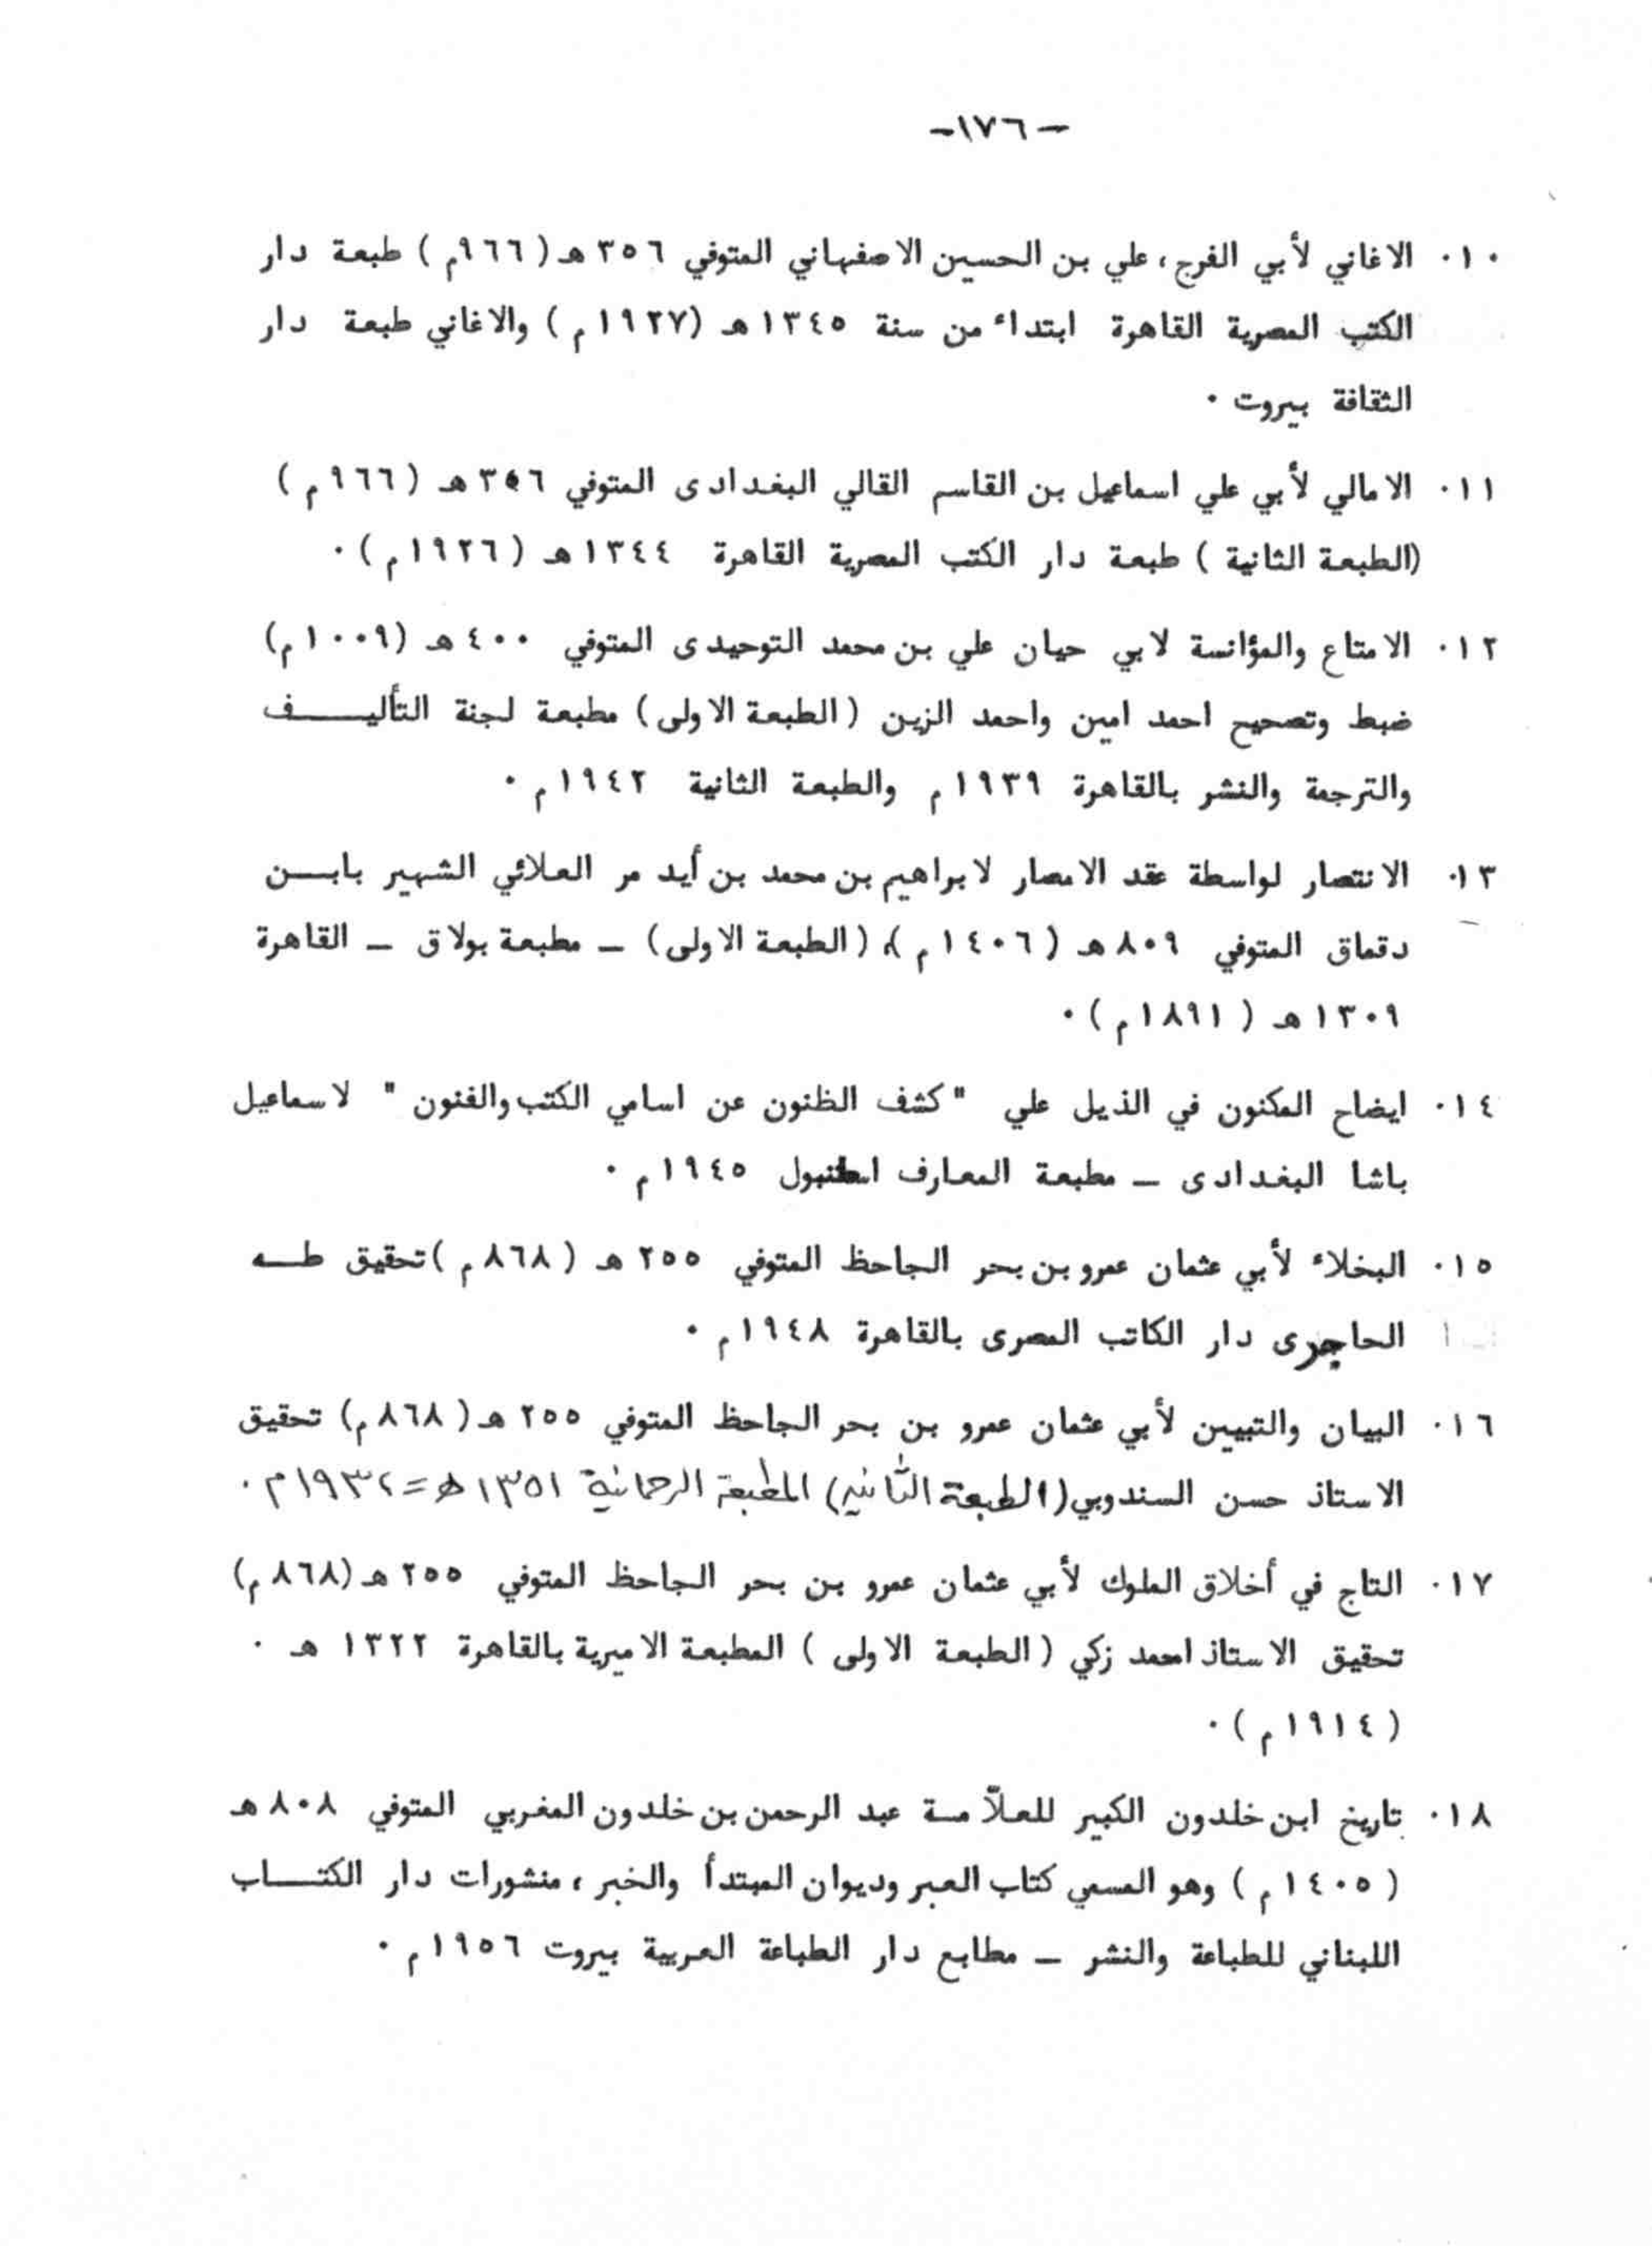 -١٧٦-
١٠. الاغاني لأبي الفرج، علي بن الحسين الاصفهاني المتوفي ٣٥٦ هـ (٩٦٦م) طبعة دار
الكتب المصرية القاهرة ابتداء من سنة ١٣٤٥ هـ (١٩٢٧ م) والاغاني طبعة دار
الثقافة بيروت .
١١. الامالي لأبي علي اسماعيل بن القاسم القالي البغدادى المتوفي ٣٥٦ هـ (٩٦٦ م)
(الطبعة الثانية) طبعة دار الكتب المصرية القاهرة ١٣٤٤ هـ (١٩٢٦ م) .
١٢. الامتاع والمؤانسة لابي حيان علي بن محمد التوحيدى المتوفي ٤٠٠ هـ (١٠٠٩ م)
ضبط وتصحيح احمد امين واحمد الزين (الطبعة الاولى) مطبعة لجنة التأليـــف
والترجمة والنشر بالقاهرة ١٩٣٩ م والطبعة الثانية ١٩٤٢ م .
١٣. الانتصار لواسطة عقد الامصار لابراهيم بن محمد بن أيد مر العلائي الشهير بابـــن
دقماق المتوفي ٨٠٩ هـ (١٤٠٦ م)، (الطبعة الاولى) – مطبعة بولاق – القاهرة
١٣٠٩ هـ (١٨٩١ م) .
١٤. ايضاح المكنون في الذيل علي " كشف الظنون عن اسامي الكتب والفنون " لاسماعيل
باشا البغدادى – مطبعة المعارف اسطنبول ١٩٤٥ م .
١٥. البخلاء لأبي عثمان عمرو بن بحر الجاحظ المتوفي ٢٥٥ هـ (٨٦٨ م) تحقيق طـــه
الحاجرى دار الكاتب المصرى بالقاهرة ١٩٤٨ م .
١٦. البيان والتبيين لأبي عثمان عمرو بن بحر الجاحظ المتوفي ٢٥٥ هـ (٨٦٨ م) تحقيق
الاستاذ حسن السندوبي (الطبعة الثانية) المطبعة الرحمانية ١٣٥١ هـ = ١٩٣٢ م .
١٧. التاج في أخلاق الملوك لأبي عثمان عمرو بن بحر الجاحظ المتوفي ٢٥٥ هـ (٨٦٨ م)
تحقيق الاستاذ احمد زكي (الطبعة الاولى) المطبعة الاميرية بالقاهرة ١٣٢٢ هـ .
(١٩١٤ م) .
١٨. تاريخ ابن خلدون الكبير للعلاّمـة عبد الرحمن بن خلدون المغربي المتوفي ٨٠٨ هـ
(١٤٠٥ م) وهو المسمي كتاب العبر وديوان المبتدأ والخبر، منشورات دار الكتـــاب
اللبناني للطباعة والنشر – مطابع دار الطباعة العربية بيروت ١٩٥٦ م .